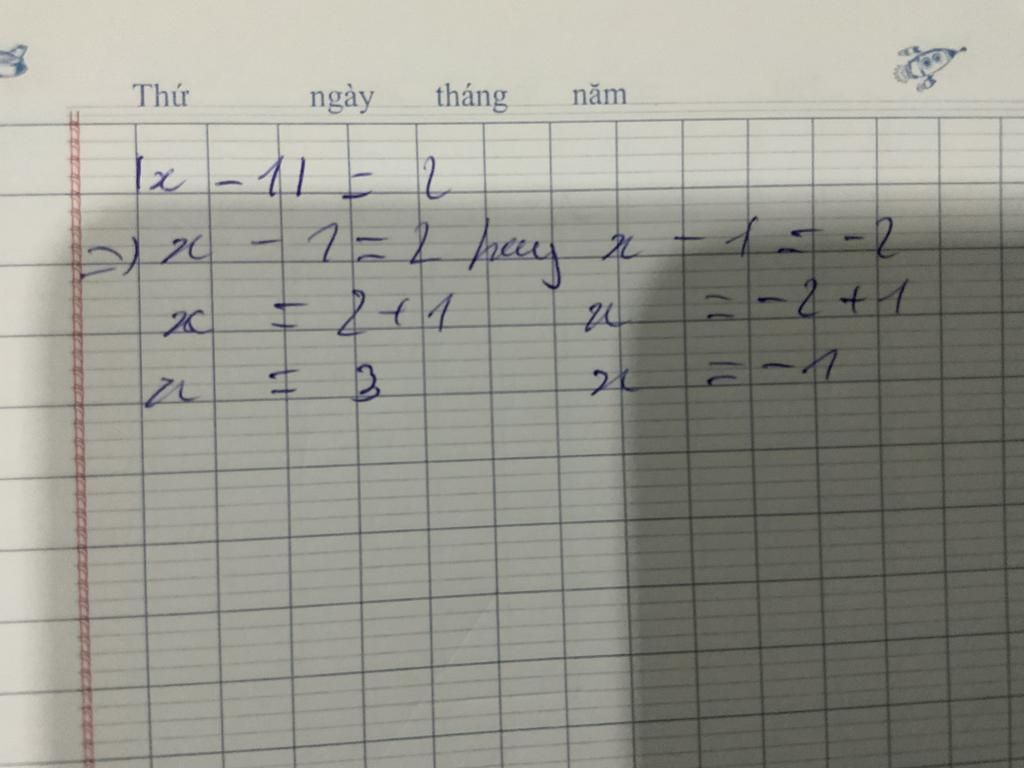 Thứ ngày tháng năm
|x - 1| = 2
=) x - 1 = 2 hay x - 1 = -2
x = 2 + 1 x = -2 + 1
x = 3 x = -1